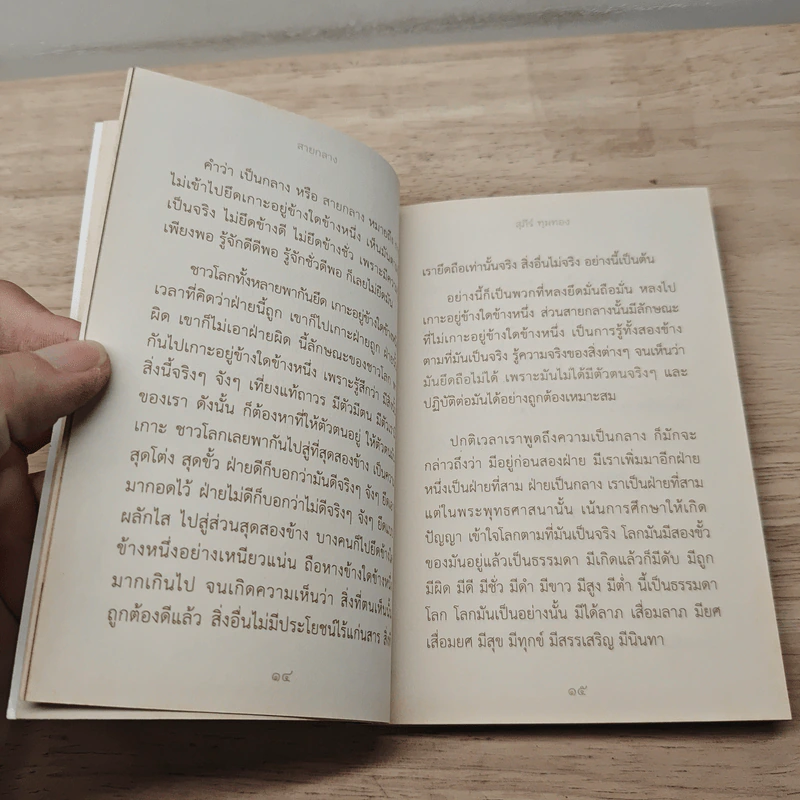 สายกลาง
คำว่า เป็นกลาง หรือ สายกลาง หมายถึง
ไม่เข้าไปยึดเกาะอยู่ข้างใดข้างหนึ่ง เห็นมันตาม
เป็นจริง ไม่ยึดข้างดี ไม่ยึดข้างชั่ว เพราะมีความ
เพียงพอ รู้จักดีดีพอ รู้จักชั่วดีพอ ก็เลยไม่ยึดมั่น
ชาวโลกทั้งหลายพากันยึด เกาะอยู่ข้างใดข้างหนึ่ง
เวลาที่คิดว่าฝ่ายนี้ถูก เขาก็ไปเกาะฝ่ายถูก
ผิด เขาก็ไม่เอาฝ่ายผิด นี้ลักษณะของชาวโลก
กันไปเกาะอยู่ข้างใดข้างหนึ่ง เพราะรู้สึกว่า
สิ่งนี้จริงๆ จังๆ เที่ยงแท้ถาวร มีตัวมีตน
ของเรา ดังนั้น ก็ต้องหาที่ให้ตัวตนอยู่
เกาะ ชาวโลกเลยพากันไปสู่ที่สุดสองข้าง
สุดโต่ง สุดขั้ว ฝ่ายดีก็บอกว่ามันดีจริงๆ จังๆ
มากอดไว้ ฝ่ายไม่ดีก็บอกว่าไม่ดีจริงๆ จังๆ
ผลักไส ไปสู่ส่วนสุดสองข้าง บางคนก็ไปยึดข้าง
ข้างหนึ่งอย่างเหนียวแน่น ถือหางข้างใดข้าง
มากเกินไป จนเกิดความเห็นว่า สิ่งที่ตนเห็น
ถูกต้องดีแล้ว สิ่งอื่นไม่มีประโยชน์ไร้แก่นสาร
๑๔
สุภีร์ ทุมทอง
เรายึดถือเท่านั้นจริง สิ่งอื่นไม่จริง อย่างนี้เป็นต้น
อย่างนี้ก็เป็นพวกที่หลงยึดมั่นถือมั่น หลงไป
เกาะอยู่ข้างใดข้างหนึ่ง ส่วนสายกลางนั้นมีลักษณะ
ที่ไม่เกาะอยู่ข้างใดข้างหนึ่ง เป็นการรู้ทั้งสองข้าง
ตามที่มันเป็นจริง รู้ความจริงของสิ่งต่างๆ จนเห็นว่า
มันยึดถือไม่ได้ เพราะมันไม่ได้มีตัวตนจริงๆ และ
ปฏิบัติต่อมันได้อย่างถูกต้องเหมาะสม
ปกติเวลาเราพูดถึงความเป็นกลาง ก็มักจะ
กล่าวถึงว่า มีอยู่ก่อนสองฝ่าย มีเราเพิ่มมาอีกฝ่าย
หนึ่งเป็นฝ่ายที่สาม ฝ่ายเป็นกลาง เราเป็นฝ่ายที่สาม
แต่ในพระพุทธศาสนานั้น เน้นการศึกษาให้เกิด
ปัญญา เข้าใจโลกตามที่มันเป็นจริง โลกมันมีสองขั้ว
ของมันอยู่แล้วเป็นธรรมดา มีเกิดแล้วก็มีดับ มีถูก
มีผิด มีดี มีชั่ว มีดำ มีขาว มีสูง มีต่ำ นี้เป็นธรรมดา
โลก โลกมันเป็นอย่างนั้น มีได้ลาภ เสื่อมลาภ มียศ
เสื่อมยศ มีสุข มีทุกข์ มีสรรเสริญ มีนินทา
๑๕